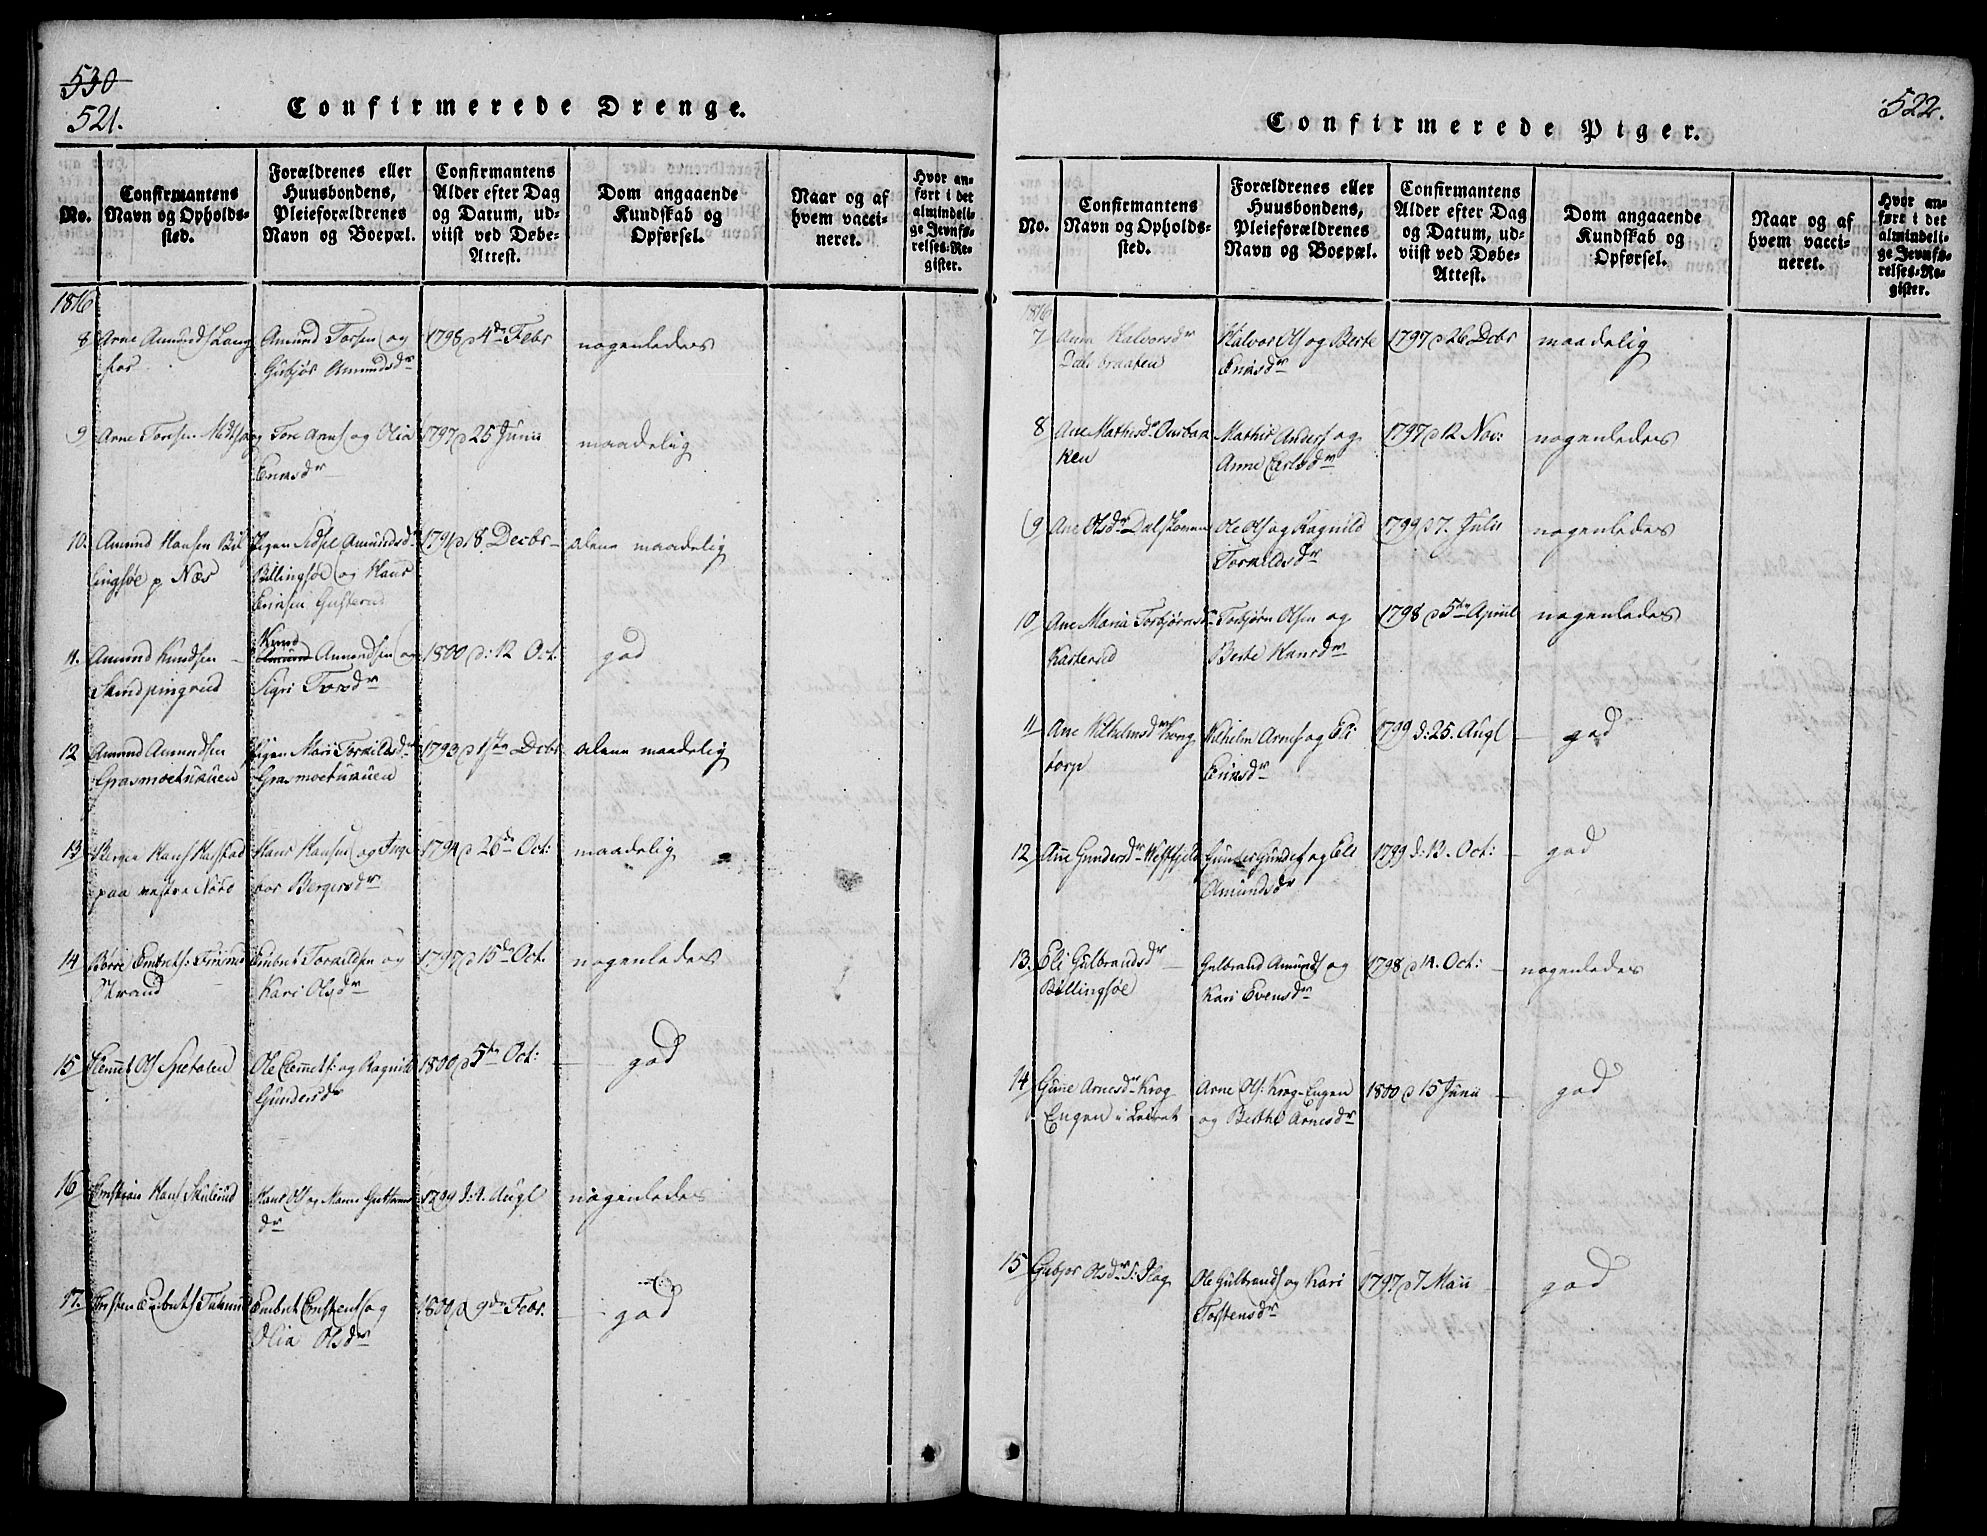 530
521.
Confirmerede Drenge.
No.
Confirmantens
Navn og Opholds-
sted.
Forældrenes eller
Huusbondens,
Pleieforældrenes
Navn og Boepæl.
Confirmantens
Alder efter Dag
og Datum, ud-
viist ved Døbe-
Attest.
Dom angaaende
Kundskab og
Opførsel.
Naar og af
hvem vacci-
neret.
Hvor an-
ført i det
almindeli-
ge Jevnfø-
relses-Re-
gister.
1816
8 Arne Amunds Lang
Amund Torsen og
Gubjør Amundsdr
1798 d 4de Febr
nogenledes
9 Arne Toresen
Tore Arnes og Olia
Erirsdr
1797 d 25 Junii
maadelig
10. Amund Hansen Bil
lingsøe p Næs
Pigen Sidsel Amundsdr
Billingsøe og Hans
1791 d 18. Decbr
alene maadelig
11. Amund Knudsen
Knud
Amund Amundsen og
Sigri Toresdr
1800 d: 12 Oct:
god
12 Amund Amundsen
Grasmoetuauen
Pigen Mari Torkildsdr
Grasmoetuauen
1793 d 1ste Dcbr
alene maadelig
13 Berger Hans
paa nestre
Hans Hansen og Inge
bor Bergersdr
1794 d 26de Oct:
maadelig
14 Børre Embrets:
Strand
Embret Torkildsen og
Kari Olsdr
1797 d 15de Oct.
nogenledes
15 Clemet Ols Spetalen
Ole Clemets: og Ragnild
Gundersdr
1800 d 5te Oct:
god
16 Christian Hans
Hans Ols og
dr
1799 d: 1. Augl
nogenledes
17. Christen Embrets
Embret Christens og
Olia Olsdr
1800 d 9de Febr:
god
522.
Confirmerede Piger.
No.
Confirmantens
Navn og Opholds-
sted.
Forældrenes eller
Huusbondens,
Pleieforældrenes
Navn og Boepæl.
Confirmantens
Alder efter Dag
og Datum, ud-
viist ved Døbe-
Attest.
Dom angaaende
Kundskab og
Opførsel.
Naar og af
hvem vacci-
neret.
Hvor an-
ført i det
almindeli-
ge Jevnfø-
relses-Re-
gister.
1816
7 Anne Halvorsdr
Dahlbraaten
Halvor Ols og Berte
Erirsdr
1797 d 26 Dcbr
maadelig
8 Ane Mathisdr
ken
Mathis Anders og
Anne Carlsdr
1797 d 12 Nov:
nogenledes
9 Ane Olsdr
Ole Ols og Ragnild
Torkildsdr
1799 d 7. Julii
nogenledes
10 Ane Maria Torbjørnsdr
Torbjørn Olsen og
Berte Hansdr
1798 d 5te April
nogenledes
11 Ane Wilhelmsdr Kong
torp
Wilhelm Arnes og Eli
Erirsdr
1799 d: 25. Augl
god
12 Ane Gundersdr
Gunder Gunders og Eli
Amundsdr
1799 d: 13. Oct:
god
13. Eli Gulbrandsdr
Billingsøe
Gulbrand Amunds og
Kari Evensdr
1798 d 14. Oct:
nogenledes
14 Gune Arnesdr Krog
Engen i Leiret
Arne Ols: Krog-Engen
og Berthe Arnesdr
1800 d 15 Junii
god
15 Gubjor Olsdr
Ole Gulbrands og Kari
Torstensdr
1797 d 7 Maii
god